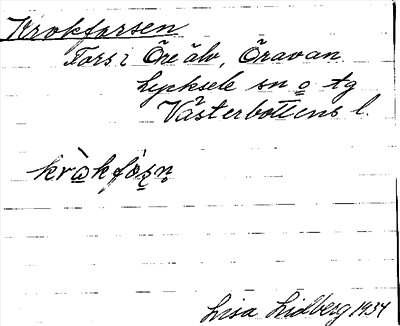 Krokforsen
Fors i Öre älv, Öravan
Lycksele sn o tg
Västerbottens l.
kròkfòșṇ
Lisa Lidberg 1934